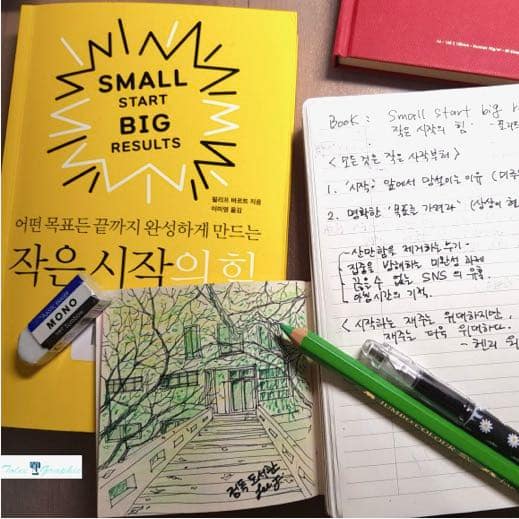 SMALL
START
BIG
RESULTS
필리프 바르트 지음
이미영 옮김
어떤 목표든 끝까지 완성하게 만드는
작은 시작의 힘
MONO
BOOK : Small Start big
작은 시작의 힘
<모든 것은 작은 시작부터>
1. '시작' 앞에서 망설이는 이유
2. 명확한 '목표를 가져라'
산만함을 제거하는 용기.
집중을 방해하는 미완성 과제
끊을 수 없는 SNS의 유혹.
아침시간의 기적.
<시작하는 재주는 위대하지만,
재주는 더욱 위대하다.
JUMBO COLOUR
정독 도서관